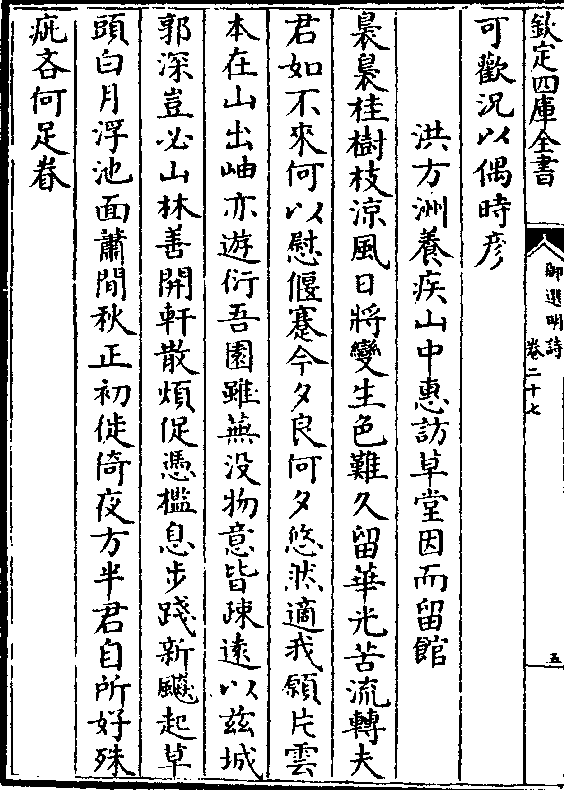 欽定四庫全書
御選明詩
卷二十七
五
可歡況以偶時彥
洪方洲養疾山中惠訪草堂因而留館
裊裊桂樹枝涼風日將變生色難久留華光苦流轉夫
君如不來何以慰偃蹇今夕良何夕悠然適我願片雲
本在山出岫亦遊衍吾園雖蕪没物意皆疎遠以兹城
郭深豈必山林善開軒散煩促憑檻息步踐新飈起草
頭白月浮池面蕭閒秋正初徙倚夜方半君自所好殊
疵吝何足眷